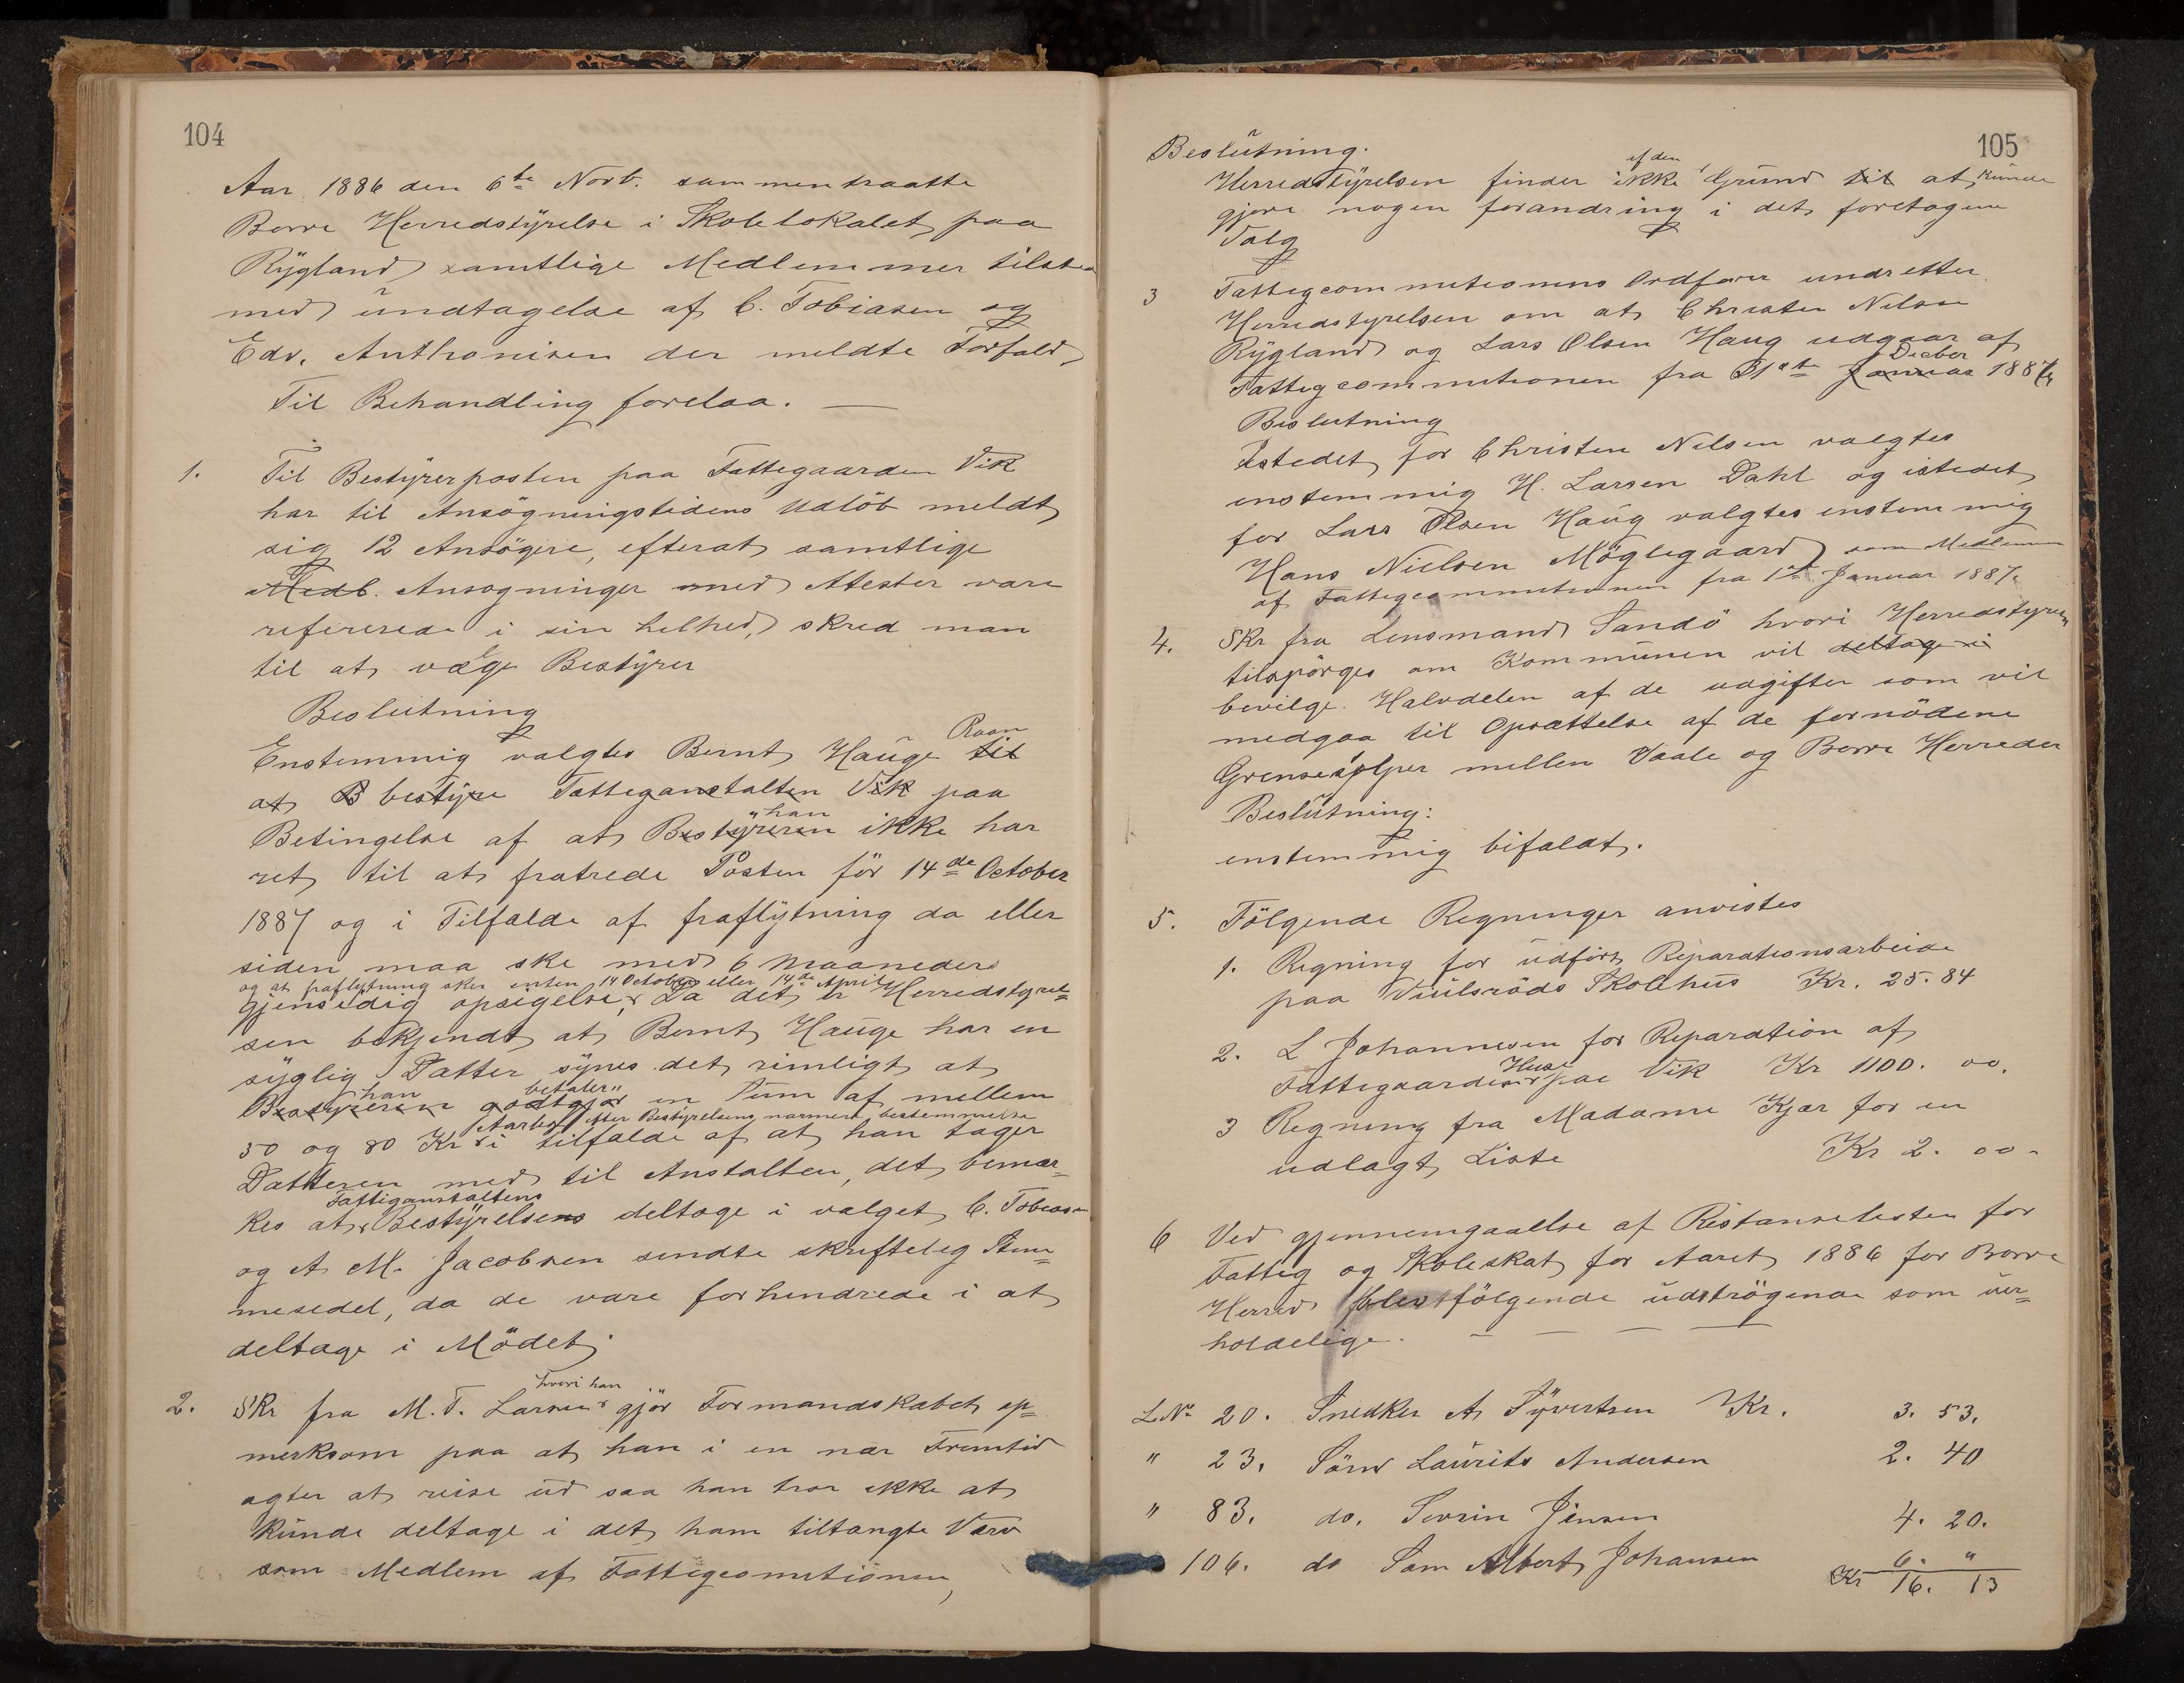 104
Aar 1886 den 6te Novb. sammentraatte
Borre Herredstÿrelse i Skolelokalet paa
Rÿgland samtlige Medlemmer tilsted
med undtagelse af C. Tobiasen og
Edv. Anthonisen der meldte Forfald
Til Behandling forelaa. —
1. Til Bestyrerposten paa Fattegaarden Vik
har til Ansögningstidens Udlöb meldt
sig 12 Ansögere, efterat samtlige
Medl. Ansogninger med Attester vare
refererede i sin helhed, skred man
til at vælge Bestÿrer
Beslutning
Raan
Enstemmig valgtes Bernt Hauge til
at B bestÿre Fatteganstalten Vik paa
han
Betingelse af at Bestÿreren ikke har
ret til at fratrede Posten för 14de October
1887 og i Tilfælde af fraflÿtning da eller
siden maa ske med 6 Maaneders
og at fraflytning sker enten 14 October eller 14de April
gjensidig opsigelse, Da det er Herredstyrel=
sen bekjendt at Bernt Hauge har en
sÿglig Datter sÿnes det rimligt at
han betaler
Bestyreren godtgjør en Sum af mellem
Aarlig efter Bestyrelsens narmere bestemmelse
50 og 80 Kr i tilfælde af at han tager
Datteren med til Anstalten, det bemær=
Fattiganstaltens
kes at Bestÿrelsens deltoge i valget C. Tobiasen
og A M. Jacobsen sendte skrifteleg Stem=
mesedel, da de vare forhendrede i at
deltage i Mödet.
hvori han
2. Skr fra M. T. Larsen gjör Formandskabet op=
merksom paa at han i en nær Fremtid
agter at reise ud saa han tror ikke at
kunde deltage i det ham tiltængte Værv
som Medlem af Fattigcomitionen,
105
Beslutning.
af den
Herredstÿrelsen finder ikke Grund til at kunde
gjøre nogen forandring i det foretagene
Valg
3 Fattigcommitionens Ordfører undretter
Herredstyrelsen om at Christen Nilsen
Rÿgland og Lars Olsen Haug udgaar af
Decber
Fattigcommitionen fra 31te Januar 1887
Beslutning
Istedet for Christen Nilsen valgtes
enstemmig H. Larsen Dahl og istedet
for Lars Olsen Haug valgtes enstemmig
Hans Nielsen Möglegaard som Medlemmer
af Fattigcommitionen fra 1ste Januar 1887.
4. Skr fra Lensmand Sandö hvori Herredstyrelsen
tilspörges om Kommunen vil deltage i
bevilge Halvdelen af de udgifter som vil
medgaa til Opsættelse af de fornödene
Grensestolper mellen Vaale og Borre Herreder
Beslutning:
enstemmig bifaldt.
5. Fölgende Regninger anvistes
1. Regning for udfört Reparationsarbeide
paa Viulsröds Skolehus Kr. 25.84
2. L Johannesen for Reparation af
Huse
Fattegaardens paa Vik Kr 1100. 00.
3 Regning fra Madame Kjær for en
udlagt Liste Kr 2. 00.
6 Ved gjennemgaallse af Restanselisten for
Fattig og Skoleskat for Aaret 1886 for Borre
Herred blev fölgende udströgende som uer=
holdelige. — — — —
L.No 20. Snedker A Sÿvertsen Kr. 3. 53.
" 23. Sömd Laurits Andersen 2. 40
" 83. do. Sevrin Jensen 4. 20.
" 106. do Sam Albert Johansen 6. "
Kr 16. 13